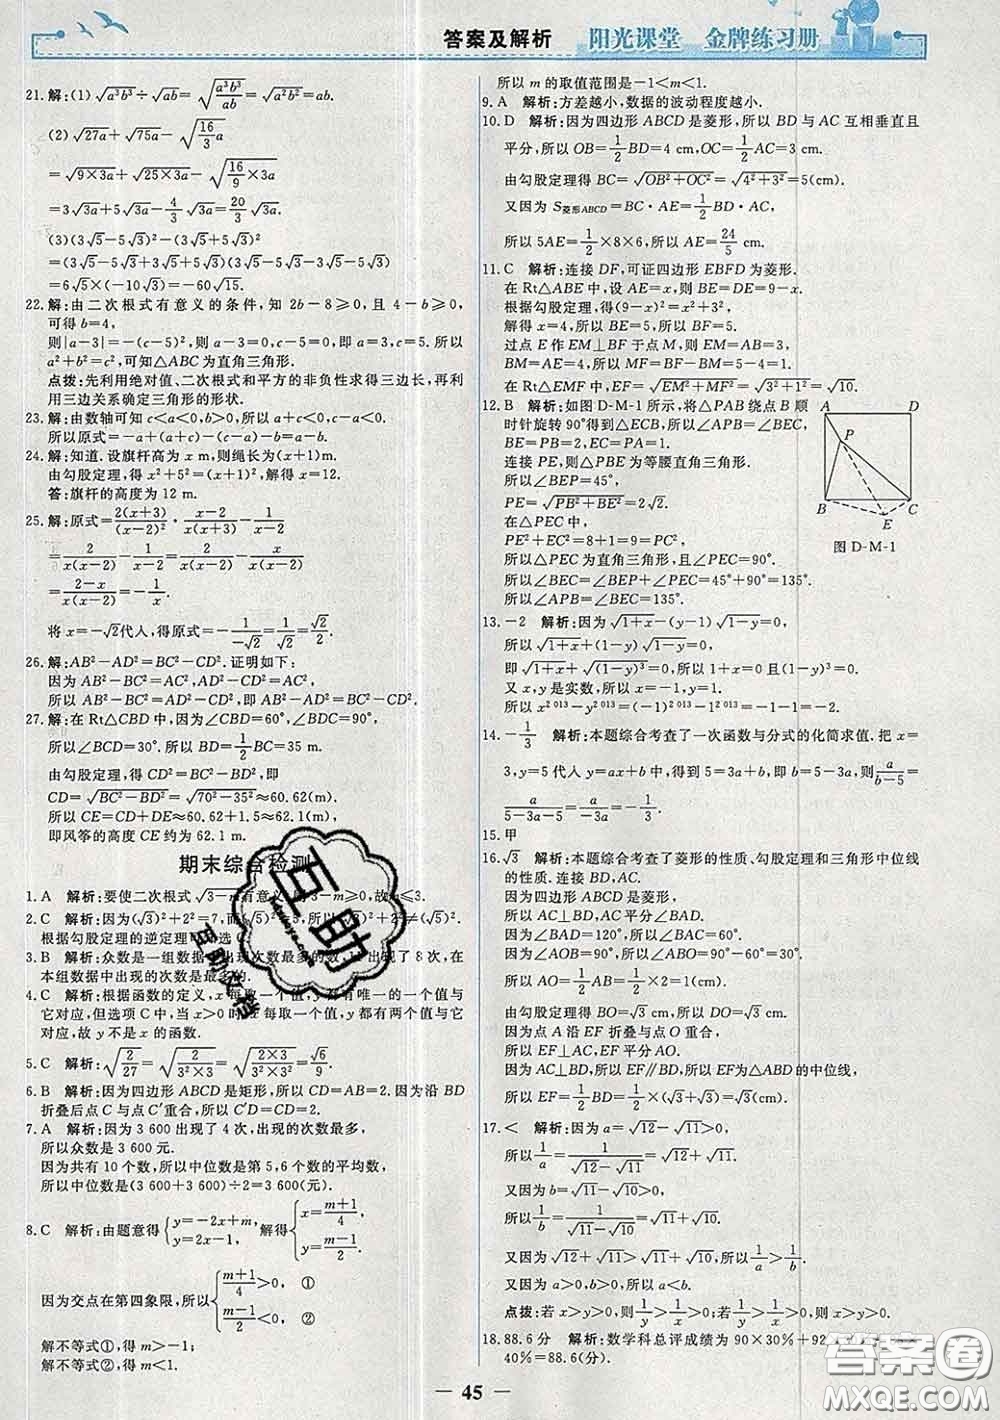 答案及解析 阳光课堂 金牌练习册
21.解:(1) √(a³b³)÷√(ab)=√(a³b³/ab)=√(a²b²)=ab.
(2) √(27a)+√(75a)-√(16/3 a)
=√(9×3a)+√(25×3a)-√(16/9×3a)
=3√(3a)+5√(3a)-4/3√(3a)=20/3√(3a).
(3)(3√5-5√3)²-(3√5+5√3)²
=(3√5-5√3+3√5+5√3)(3√5-5√3-3√5-5√3)
=6√5×(-10√3)=-60√15.
22.解:由二次根式有意义的条件,知 2b-8≥0,且 4-b≥0,
可得 b=4,
则|a-3|=-(c-5)²,则 a-3=0,c-5=0,即 a=3,c=5.所以
a²+b²=c²,可知△ABC为直角三角形.
点拨:先利用绝对值、二次根式和平方的非负性求得三边长,再利
用三边关系确定三角形的形状.
23.解:由数轴可知 c<a<0,b>0,所以 a+c<0,c-a<0.
所以原式=-a+(a+c)-(c-a)-b=a-b.
24.解:知道.设旗杆高为 x m,则绳长为(x+1)m.
由勾股定理,得 x²+5²=(x+1)²,解得 x=12.
答:旗杆的高度为 12 m.
25.解:原式=2(x+3)/(x(x-2)²)·(x-2)/(x+3)-1/(x-2)
=2/(x(x-2))-1/(x-2)=2/(x(x-2))-x/(x(x-2))
=(2-x)/(x(x-2))=-1/x.
将 x=-√2代入,得原式=-1/(-√2)=1/√2=√2/2.
26.解:AB²-AD²=BC²-CD².证明如下:
因为 AB²-BC²=AC²,AD²-CD²=AC²,
所以 AB²-BC²=AD²-CD²,即 AB²-AD²=BC²-CD².
27.解:在 Rt△CBD 中,因为∠CBD=60°,∠BDC=90°,
所以∠BCD=30°.所以 BD=1/2BC=35 m.
由勾股定理,得 CD²=BC²-BD²,即
CD=√(BC²-BD²)=√(70²-35²)≈60.62(m).
所以 CE=CD+DE≈60.62+1.5≈62.1(m).
即风筝的高度 CE 约为 62.1 m.
期末综合检测
1.A 解析:要使二次根式√(3-m)有意义,则 3-m≥0,故 m≤3.
2.C 解析:因为(√3)²+2²=7,而(√5)²=5,所以(√3)²+2²≠(√5)².
根据勾股定理的逆定理可知选 C.
3.B 解析:众数是一组数据中出现次数最多的数,11 出现了 8 次,在
本组数据中出现的次数是最多的.
4.C 解析:根据函数的定义,x 每取一个值,y 都有唯一的一个值与
它对应,但选项 C 中,当 x>0时,x 每取一个值,y 都有两个值与它
对应,故 y 不是 x 的函数.
5.C 解析:√(2/27)=√(2/(3²×3))=√((2×3)/(3²×3²))=√6/9.
6.B 解析:因为四边形 ABCD 是矩形,所以 CD=AB=2.因为沿 BD
折叠后点 C 与点 C′重合,所以 C′D=CD=2.
7.A 解析:因为 3 600 出现了 4 次,出现的次数最多,
所以众数是 3 600元.
因为共有 10 个数,所以中位数是第 5,6 个数的平均数,
所以中位数是(3 600+3 600)÷2=3 600(元).
8.C 解析:由题意得{y=-2x+m, y=2x-1, 解得{x=(m+1)/4, y=(m-1)/2.
因为交点在第四象限,所以{(m+1)/4>0, ① (m-1)/2<0. ②
解不等式①,得 m>-1;
解不等式②,得 m<1.
所以 m 的取值范围是-1<m<1.
9.A 解析:方差越小,数据的波动程度越小.
10.D 解析:因为四边形 ABCD 是菱形,所以 BD 与 AC 互相垂直且
平分,所以 OB=1/2BD=4 cm,OC=1/2AC=3 cm.
由勾股定理得 BC=√(OB²+OC²)=√(4²+3²)=5(cm).
又因为 S菱形ABCD=BC·AE=1/2BD·AC,
所以 5AE=1/2×8×6,所以 AE=24/5 cm.
11.C 解析:连接 DF,可证四边形 EBFD 为菱形.
在 Rt△ABE 中,设 AE=x,则 BE=DE=9-x.
根据勾股定理,得(9-x)²=x²+3²,
解得 x=4,所以 BE=5,所以 BF=5.
过点 E 作 EM⊥BF 于点 M,则 EM=AB=3,
BM=AE=4.所以 MF=BF-BM=5-4=1.
在 Rt△EMF 中,EF=√(EM²+MF²)=√(3²+1²)=√10.
12.B 解析:如图 D-M-1 所示,将△PAB 绕点 B 顺
时针旋转 90°得到△ECB,所以∠APB=∠BEC,
BE=PB=2,EC=PA=1.
连接 PE,则△PBE 为等腰直角三角形.
所以∠BEP=45°,
PE=√(PB²+BE²)=2√2.
在△PEC 中,
PE²+EC²=8+1=9=PC²,
所以△PEC 为直角三角形,且∠PEC=90°.
所以∠BEC=∠BEP+∠PEC=45°+90°=135°.
所以∠APB=∠BEC=135°.
A D P B E C
图 D-M-1
13.-2 解析:因为√(1+x)-(y-1)√(1-y)=0,
所以√(1+x)+(1-y)√(1-y)=0,
即√(1+x)+√((1-y)³)=0,所以 1+x=0 且(1-y)³=0.
又 x,y 是实数,所以 x=-1,y=1.
所以 x²⁰¹³-y²⁰¹³=(-1)²⁰¹³-1²⁰¹³=-1-1=-2.
14.-1/3 解析:本题综合考查了一次函数与分式的化简求值.把 x=
3,y=5代入 y=ax+b 中,得到 5=3a+b,即 b=5-3a,则a/(b-5)=
a/(5-3a-5)=a/(-3a)=-1/3.
15.甲
16.√3 解析:本题综合考查了菱形的性质、勾股定理和三角形中位线
的性质.连接 BD,AC.
因为四边形 ABCD 是菱形,
所以 AC⊥BD,AC平分∠BAD.
因为∠BAD=120°,所以∠BAC=60°.
因为∠AOB=90°,所以∠ABO=90°-60°=30°.
所以 AO=1/2AB=1/2×2=1(cm).
由勾股定理得 BO=√3 cm,所以 DO=√3 cm.
因为点 A 沿 EF 折叠与点 O 重合,
所以 EF⊥AC,EF 平分 AO.
因为 AC⊥BD,所以 EF∥BD,所以 EF为△ABD 的中位线,
所以 EF=1/2BD=1/2×(√3+√3)=√3(cm).
17.< 解析:因为 a=√12-√11>0,
所以1/a=1/(√12-√11)=√12+√11.
又因为 b=√11-√10>0,
所以1/b=1/(√11-√10)=√11+√10.
又因为√12+√11>√11+√10,所以1/a>1/b.
又因为 a>0,b>0,所以 a<b.
点拨:若 x>y>0,则1/x<1/y;若1/x>1/y>0,则 x<y.
18.88.6 分 解析:数学科总评成绩为 90×30%+92
40%=88.6(分).
45
互助
互助文档
答案圈
MXQE.COM